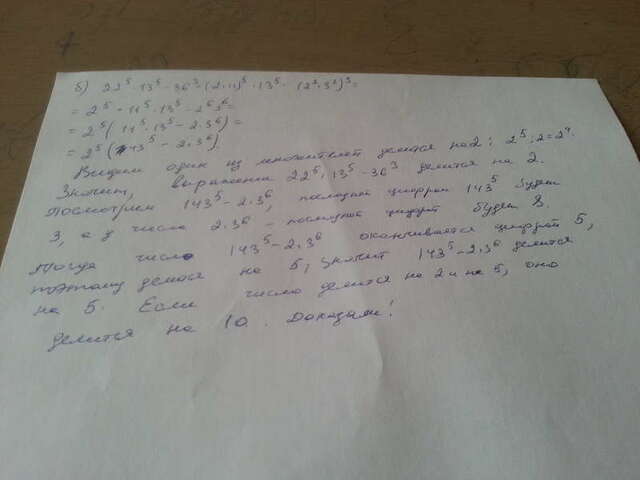 б) 22⁵ · 13⁵ - 36³ = (2·11)⁵ · 13⁵ - (2²·3²)³ =
= 2⁵ · 11⁵ · 13⁵ - 2⁶ 3⁶ =
= 2⁵ ( 11⁵ · 13⁵ - 2·3⁶) =
= 2⁵ ( 143⁵ - 2·3⁶).
Видим один из множителей делится на 2: 2⁵ : 2 = 2⁴.
Значит, выражение 22⁵ · 13⁵ - 36³ делится на 2.
Посмотрим 143⁵ - 2·3⁶, последней цифрой 143⁵ будет
3, а у числа 2·3⁶ - последней цифрой будет 8.
Тогда число 143⁵ - 2·3⁶ оканчивается цифрой 5,
поэтому делится на 5, значит 143⁵ - 2·3⁶ делится
на 5. Если число делится на 2 и на 5, оно
делится на 10. Доказали!